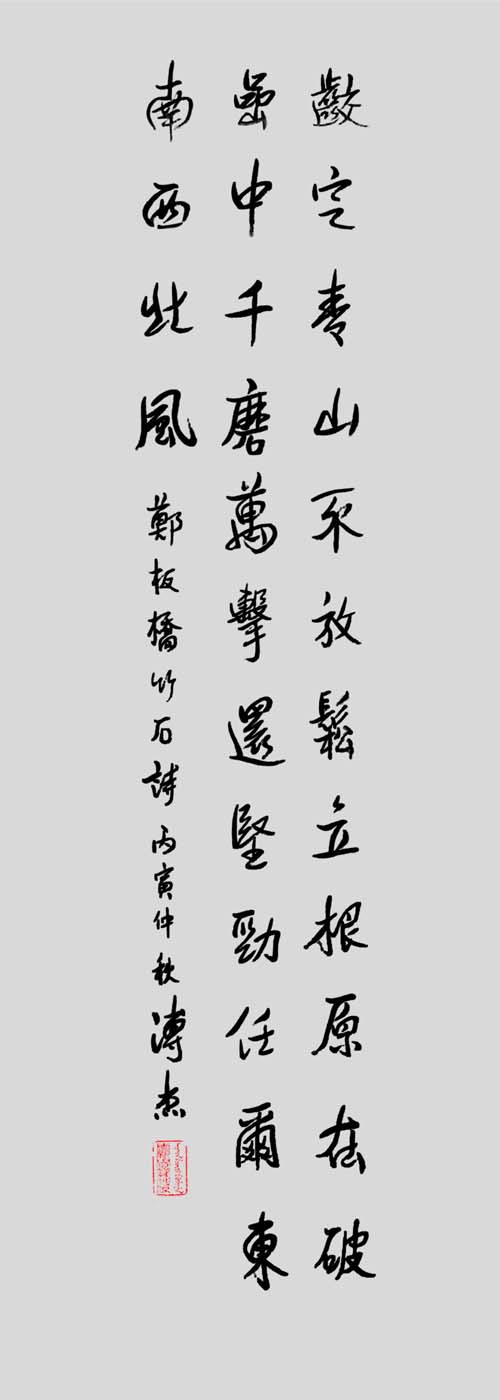 齩定青山不放鬆立根原在破
嵒中千磨萬擊還堅勁任爾東
南西北風 鄭板橋竹石詩 丙寅仲秋 溥杰